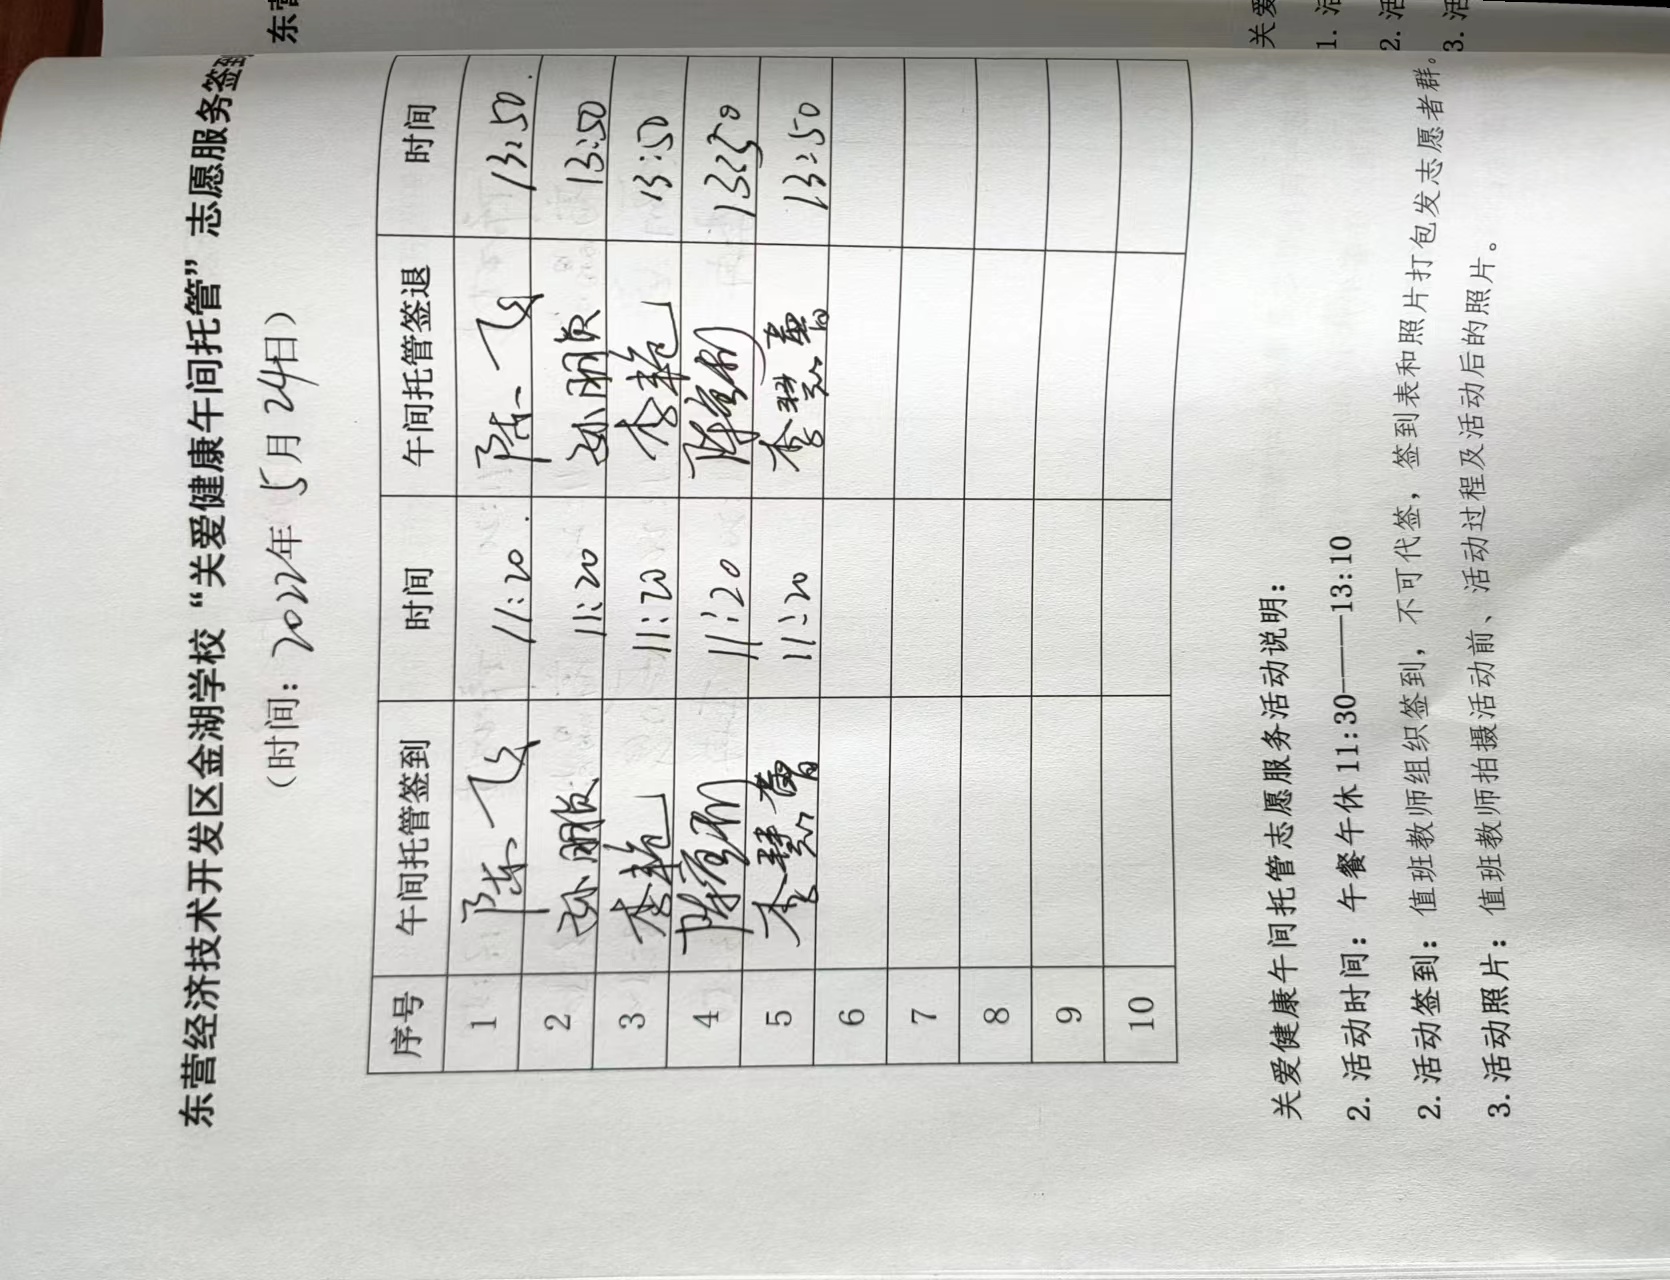 东营经济技术开发区金湖学校“关爱健康午间托管”志愿服务签到
（时间：2022年5月24日）
序号 午间托管签到 时间 午间托管签退 时间
1 陈飞 11:20 陈飞 13:50
2 孙朋 11:20 孙朋 13:50
3 李艳 11:20 李艳 13:50
4 陈 11:20 陈 13:50
5 李慧 11:20 李慧 13:50
6
7
8
9
10
关爱健康午间托管志愿服务活动说明：
2. 活动时间：午餐午休 11:30——13:10
2. 活动签到：值班教师组织签到，不可代签，签到表和照片打包发志愿者群。
3. 活动照片：值班教师拍摄活动前、活动过程及活动后的照片。
东营
关爱
1. 活
2. 活
3. 活